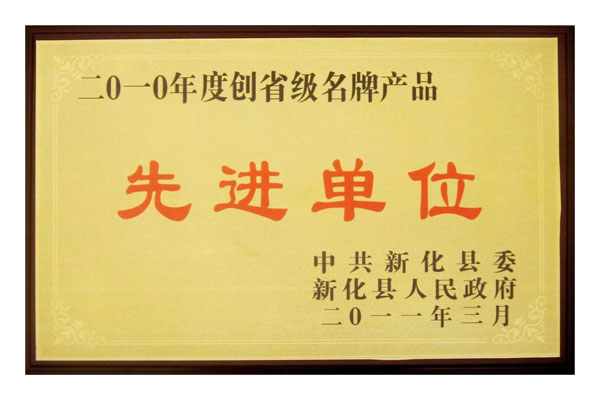 二0一0年度创省级名牌产品
先进单位
中共新化县委
新化县人民政府
二0一一年三月